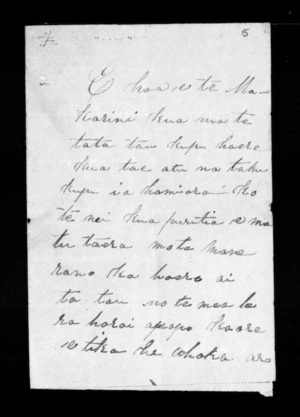 5
E hoa e te Ma-
karini kua mate
tata tau kupu haere
kua tae atu na taku
kupu ia hamiora ko
te nei kua purutia e ma
tu taera mo te Mane
rano ka haere ai
ta tau no te mea ke
ra horoi apopo kaore
e tika he whaka aro